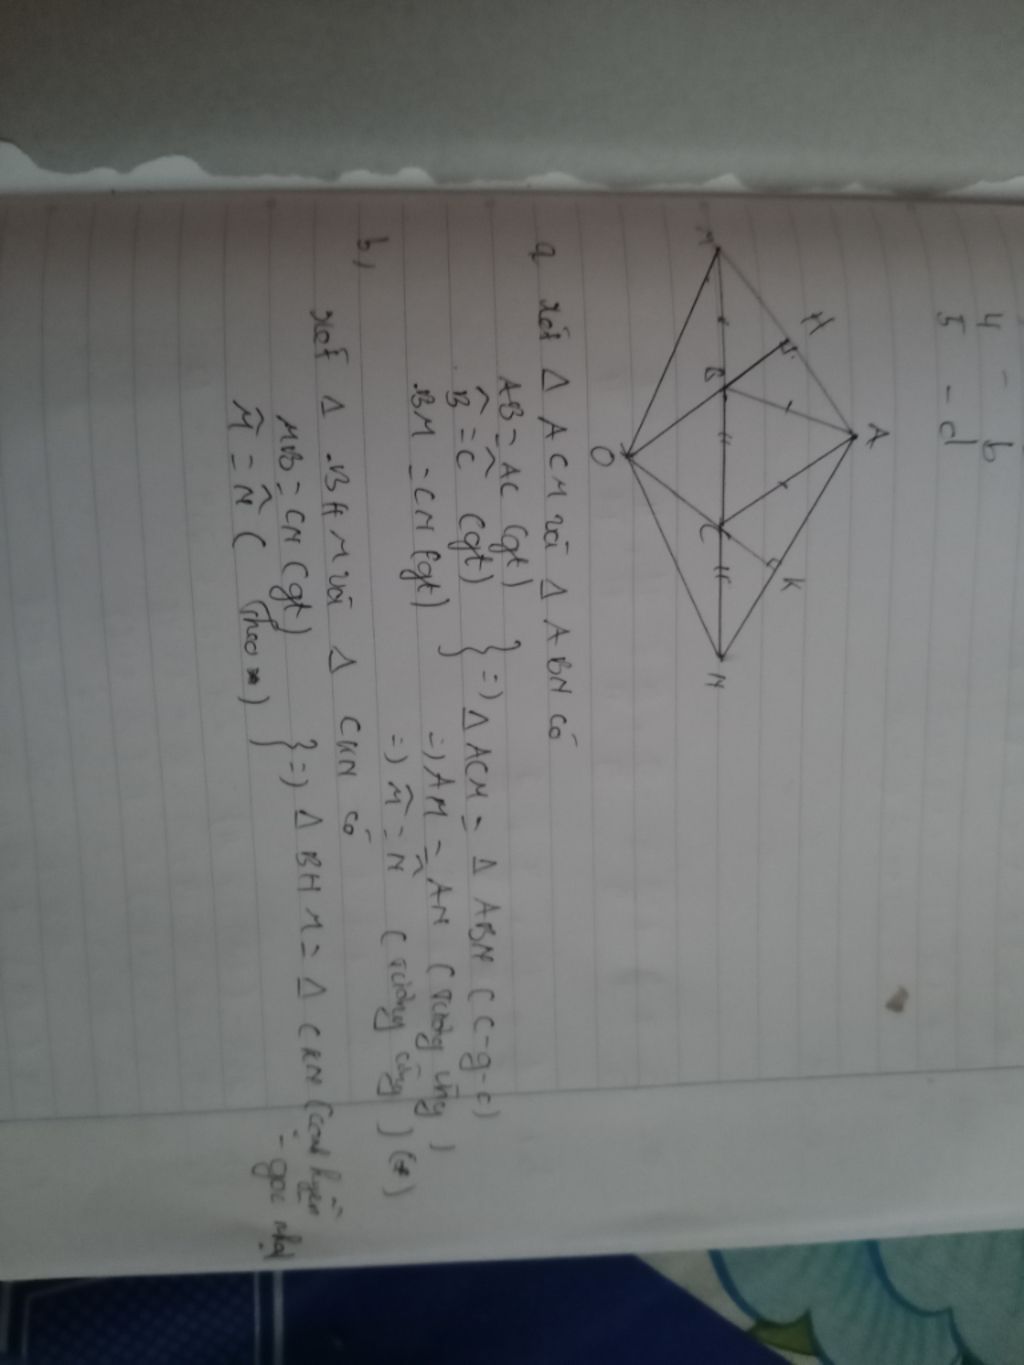 4 - b
5 - d
A
H
K
M
B
C
N
O
a Xét Δ ACM và Δ ABN có
AB = AC (gt)
B̂ = Ĉ (gt)
BM = CN (gt)
} => Δ ACM = Δ ABN (c-g-c)
=> AM = AN (tương ứng)
=> M̂ = N̂ (tương ứng) (*)
b,
Xét Δ BHM và Δ CKN có
MB = CN (gt)
M̂ = N̂ ( theo * )
} => Δ BHM = Δ CKN (cạnh huyền
- góc nhọn